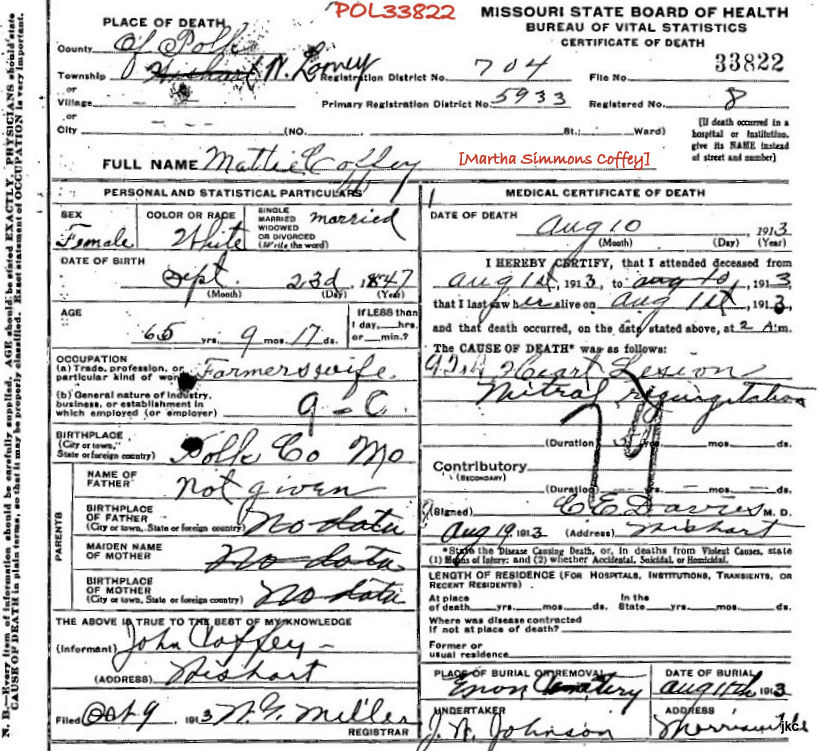 POL33822
MISSOURI STATE BOARD OF HEALTH
BUREAU OF VITAL STATISTICS
CERTIFICATE OF DEATH
33822
PLACE OF DEATH
County Of Polk
Township Wishart N. Registration District No. 704 File No.
or
Village
Primary Registration District No. 5933 Registered No. 8
or
City (NO. St.; Ward)
[If death occurred in a
hospital or institution,
give its NAME instead
of street and number]
FULL NAME Mattie Coffey [Martha Simmons Coffey]
PERSONAL AND STATISTICAL PARTICULARS
SEX
Female
COLOR OR RACE
White
SINGLE
MARRIED
WIDOWED
OR DIVORCED
(Write the word)
married
DATE OF BIRTH
Sept 23d, 1847
(Month) (Day) (Year)
AGE
65 yrs. 9 mos. 17 ds.
If LESS than
1 day, hrs.
or min.?
OCCUPATION
(a) Trade, profession, or
particular kind of work
Farmers wife
(b) General nature of industry,
business, or establishment in
which employed (or employer)
BIRTHPLACE
(City or town,
State or foreign country)
Polk Co Mo
PARENTS
NAME OF
FATHER
Not given
BIRTHPLACE
OF FATHER
(City or town, State or foreign country)
No data
MAIDEN NAME
OF MOTHER
No data
BIRTHPLACE
OF MOTHER
(City or town, State or foreign country)
No data
THE ABOVE IS TRUE TO THE BEST OF MY KNOWLEDGE
(Informant) John Coffey
(ADDRESS) Wishart
Filed Oct 9, 1913 Miller
REGISTRAR
MEDICAL CERTIFICATE OF DEATH
DATE OF DEATH
Aug 10 1913
(Month) (Day) (Year)
I HEREBY CERTIFY, that I attended deceased from
Aug 1st, 1913, to Aug 10, 1913,
that I last saw her alive on Aug 1st, 1913,
and that death occurred, on the date stated above, at 2 A.m.
The CAUSE OF DEATH* was as follows:
Heart Lesion
Mitral regurgitation
79
(Duration) yrs. mos. ds.
Contributory
(SECONDARY)
(Duration) yrs. mos. ds.
(Signed) C E Davies M. D.
Aug 19 1913 (Address) Wishart
*State the Disease Causing Death, or, in deaths from Violent Causes, state
(1) Means of Injury; and (2) whether Accidental, Suicidal, or Homicidal.
LENGTH OF RESIDENCE (FOR HOSPITALS, INSTITUTIONS, TRANSIENTS, OR
RECENT RESIDENTS)
At place
of death yrs. mos. ds.
In the
State yrs. mos. ds.
Where was disease contracted
if not at place of death?
Former or
usual residence
PLACE OF BURIAL OR REMOVAL
Enon Cemetery
DATE OF BURIAL
Aug 11th 1913
UNDERTAKER
J. W. Johnson
ADDRESS
Morrisville
jkcl
N. B.—Every item of information should be carefully supplied. AGE should be stated EXACTLY. PHYSICIANS should state
CAUSE OF DEATH in plain terms, so that it may be properly classified. Exact statement of OCCUPATION is very important.